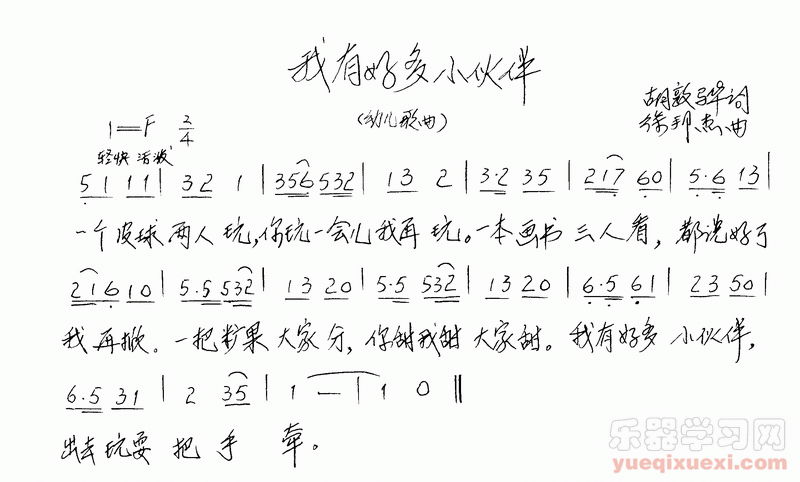 我有好多小伙伴
(幼儿歌曲)
胡敦骅词
徐邦杰曲
1=F 2/4
轻快 活泼
5 1 1 1 | 3 2 1 | 3 5 6 5 3 2 | 1 3 2 | 3·2 3 5 | 2 1 7 6 0 | 5·6 1 3 |
一个皮球两人玩,你玩一会儿我再玩。一本画书三人看,都说好了
2 1 6 1 0 | 5·5 5 3 2 | 1 3 2 0 | 5·5 5 3 2 | 1 3 2 0 | 6·5 6 1 | 2 3 5 0 |
我再掀。一把糖果大家分,你甜我甜大家甜。我有好多小伙伴,
6·5 3 1 | 2 3 5 | 1 — | 1 0 ‖
出去玩耍把手牵。
乐器学习网
yueqixuexi.com